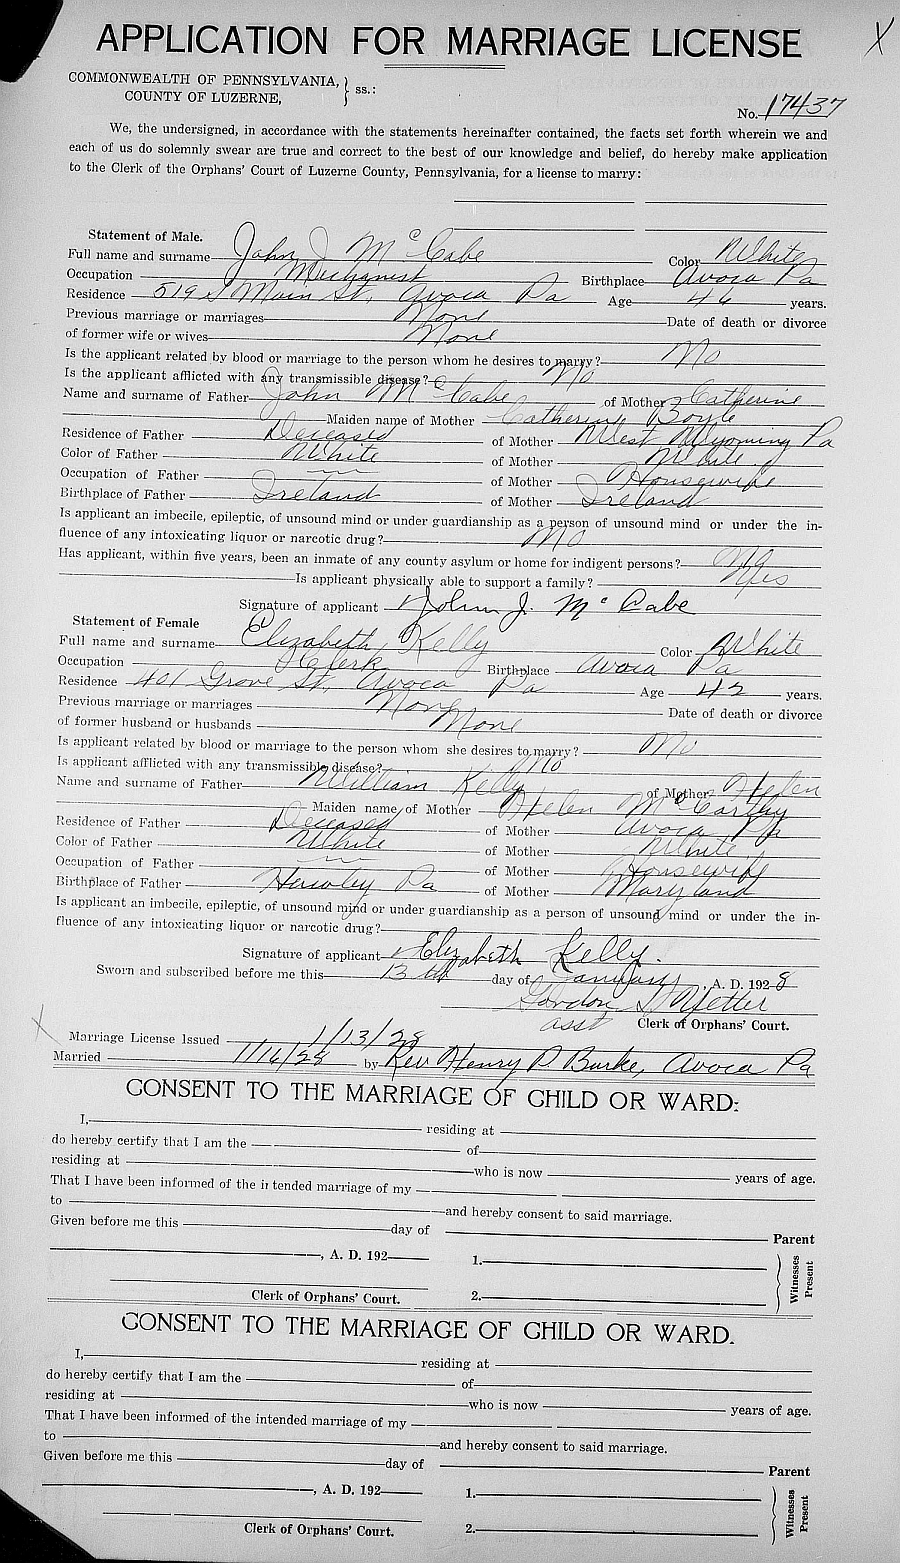 APPLICATION FOR MARRIAGE LICENSE
X
COMMONWEALTH OF PENNSYLVANIA, } ss.:
COUNTY OF LUZERNE,
No. 17437
We, the undersigned, in accordance with the statements hereinafter contained, the facts set forth wherein we and
each of us do solemnly swear are true and correct to the best of our knowledge and belief, do hereby make application
to the Clerk of the Orphans' Court of Luzerne County, Pennsylvania, for a license to marry:
Statement of Male.
Full name and surname John J McCabe Color White
Occupation Mechanist Birthplace Avoca Pa
Residence 519 S Main St, Avoca Pa Age 46 years.
Previous marriage or marriages None Date of death or divorce
of former wife or wives None
Is the applicant related by blood or marriage to the person whom he desires to marry? No
Is the applicant afflicted with any transmissible disease? No
Name and surname of Father John McCabe of Mother Catherine
Maiden name of Mother Catherine Boyle
Residence of Father Deceased of Mother West Wyoming Pa
Color of Father White of Mother White
Occupation of Father of Mother Housewife
Birthplace of Father Ireland of Mother Ireland
Is applicant an imbecile, epileptic, of unsound mind or under guardianship as a person of unsound mind or under the in-
fluence of any intoxicating liquor or narcotic drug? No
Has applicant, within five years, been an inmate of any county asylum or home for indigent persons? No
Is applicant physically able to support a family? Yes
Signature of applicant John J. McCabe
Statement of Female
Full name and surname Elizabeth Kelly Color White
Occupation Clerk Birthplace Avoca Pa
Residence 401 Grove St, Avoca Pa Age 42 years.
Previous marriage or marriages None Date of death or divorce
of former husband or husbands None
Is applicant related by blood or marriage to the person whom she desires to marry? No
Is applicant afflicted with any transmissible disease? No
Name and surname of Father William Kelly of Mother Helen
Maiden name of Mother Helen McCarthy
Residence of Father Deceased of Mother Avoca Pa
Color of Father White of Mother White
Occupation of Father of Mother Housewife
Birthplace of Father Hawley Pa of Mother Maryland
Is applicant an imbecile, epileptic, of unsound mind or under guardianship as a person of unsound mind or under the in-
fluence of any intoxicating liquor or narcotic drug?
Signature of applicant Elizabeth Kelly.
Sworn and subscribed before me this 13th day of January, A. D. 1928
Gordon
asst Clerk of Orphans' Court.
X
Marriage License Issued 1/13/28
Married 1/16/28 by Rev Henry P. Burke, Avoca Pa
CONSENT TO THE MARRIAGE OF CHILD OR WARD:
I, residing at
do hereby certify that I am the of
residing at who is now years of age.
That I have been informed of the intended marriage of my
to and hereby consent to said marriage.
Given before me this day of
Parent
, A. D. 192 1.
Clerk of Orphans' Court. 2.
Witnesses Present
CONSENT TO THE MARRIAGE OF CHILD OR WARD.
I, residing at
do hereby certify that I am the of
residing at who is now years of age.
That I have been informed of the intended marriage of my
to and hereby consent to said marriage.
Given before me this day of
Parent
, A. D. 192 1.
Clerk of Orphans' Court. 2.
Witnesses Present